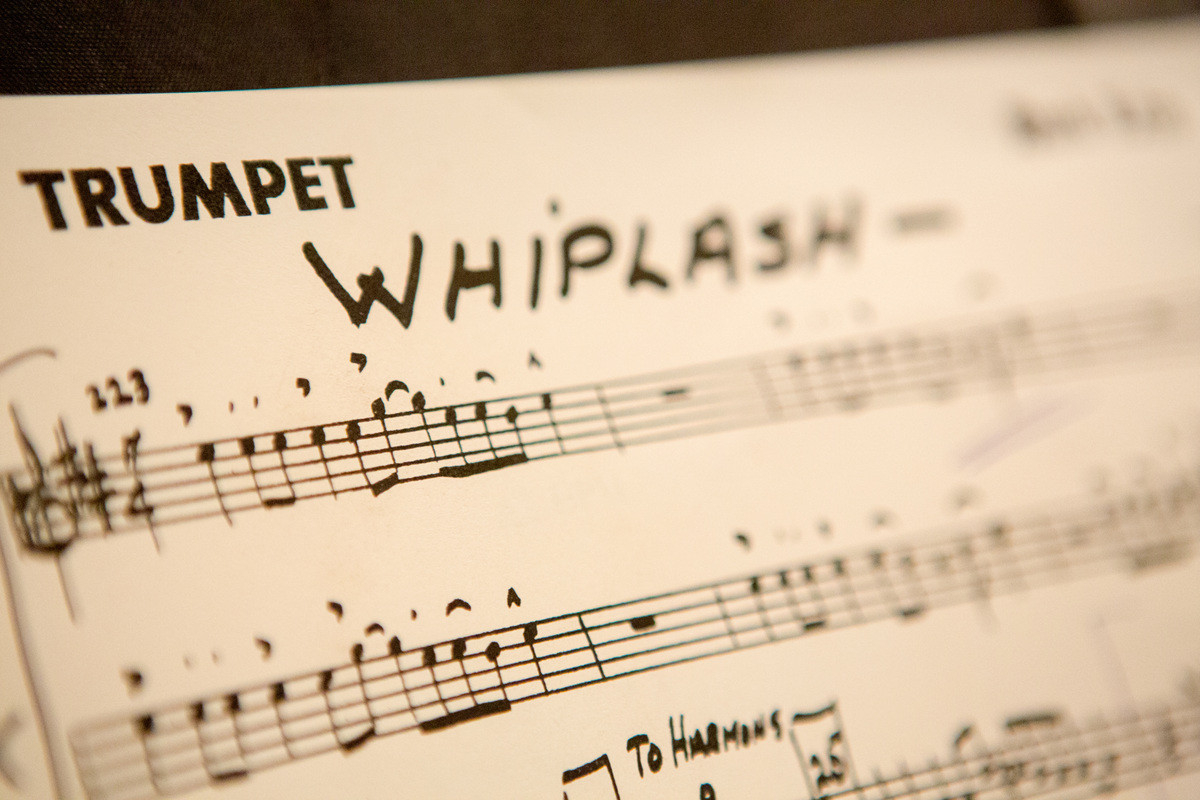 TRUMPET
WHiPLASH —
223
7
4
TO HARMONS
25